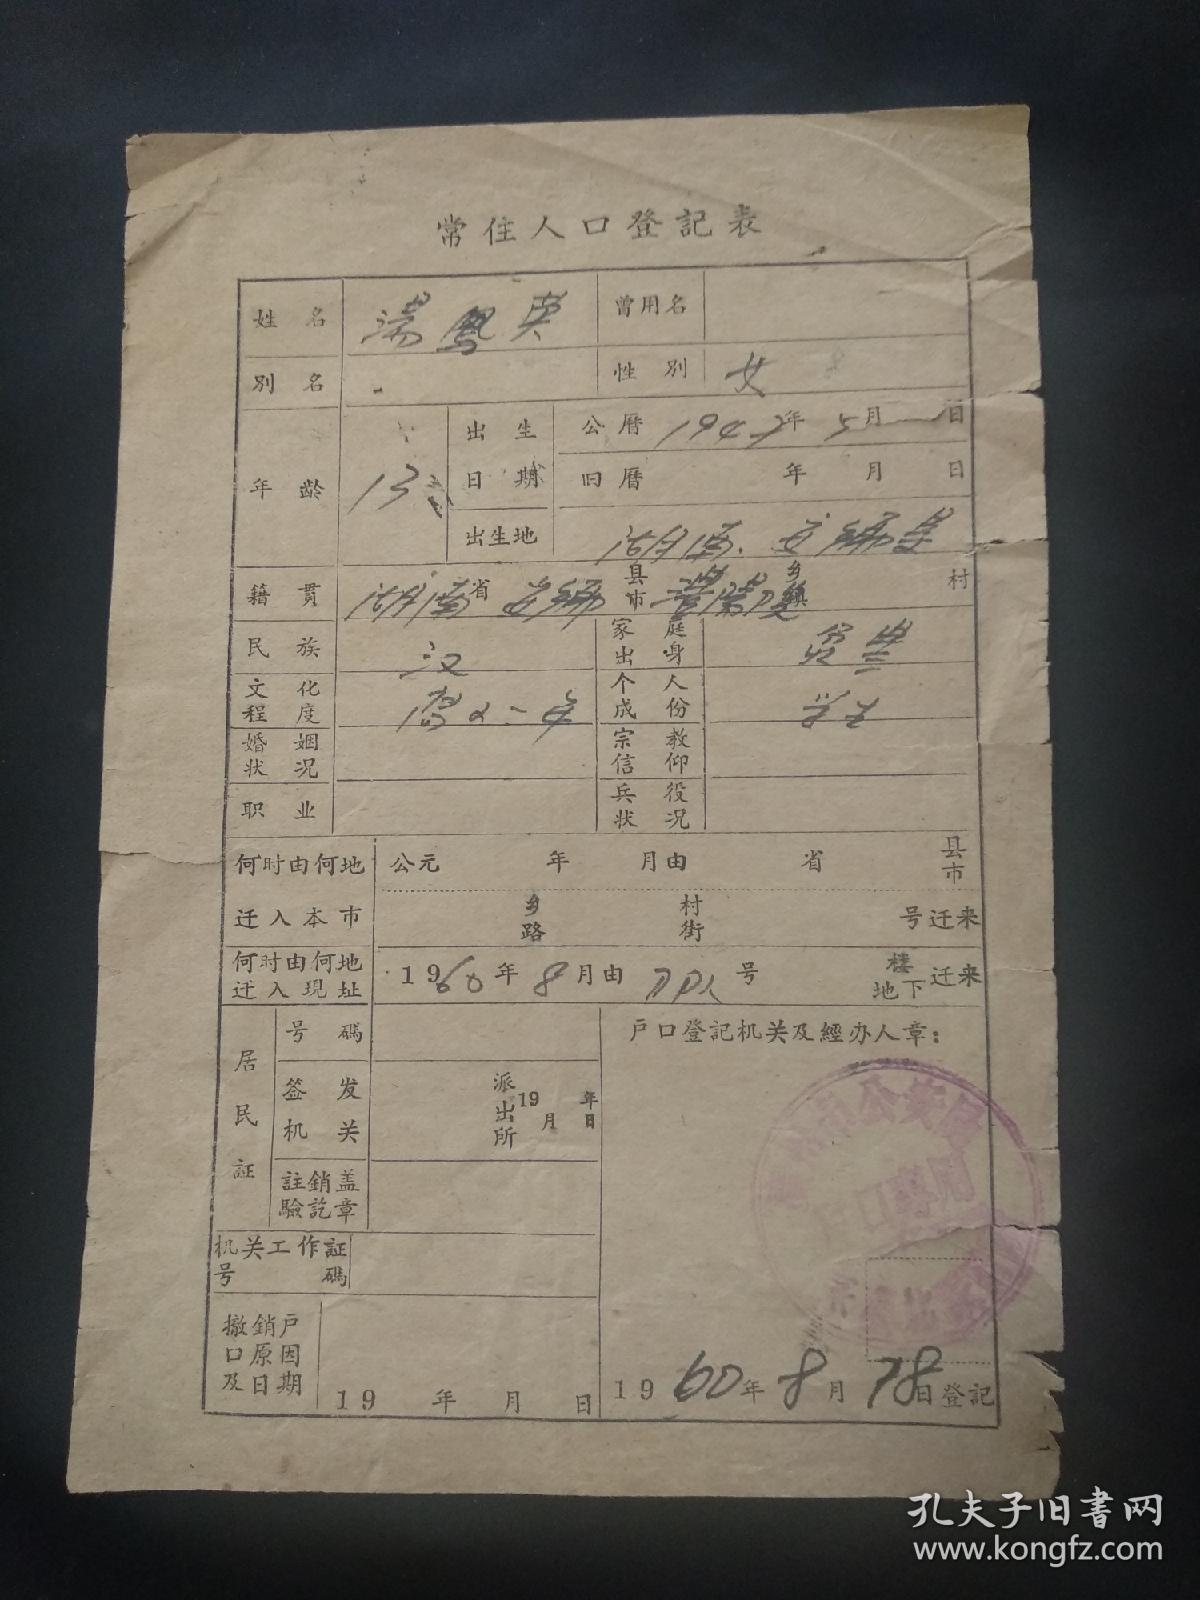 常住人口登記表
姓名 湯鳳英 曾用名
別名 性別 女
年齡 13 出生日期 公曆 1947年5月日
旧曆 年月日
出生地 湖南
籍貫 湖南省 县市 乡鎮 村
民族 汉 家庭出身 貧農
文化程度 高小一年 个人成份 学生
婚姻状况 宗教信仰
职业 兵役状况
何时由何地迁入本市 公元 年 月由 省 县市
乡路 村街 号迁来
何时由何地迁入現址 1960年8月由 号 楼地下迁来
居民証 号碼 戶口登記机关及經办人章：
签发机关 派出所 19 年 月 日
註銷盖驗訖章
机关工作証号碼
撤銷戶口原因及日期 19 年 月 日
市公安局
戶口專用
1960年8月18日登記
孔夫子旧书网
www.kongfz.com